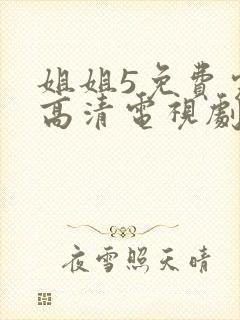 姐姐5免費
高清電視劇
夜雪照天晴